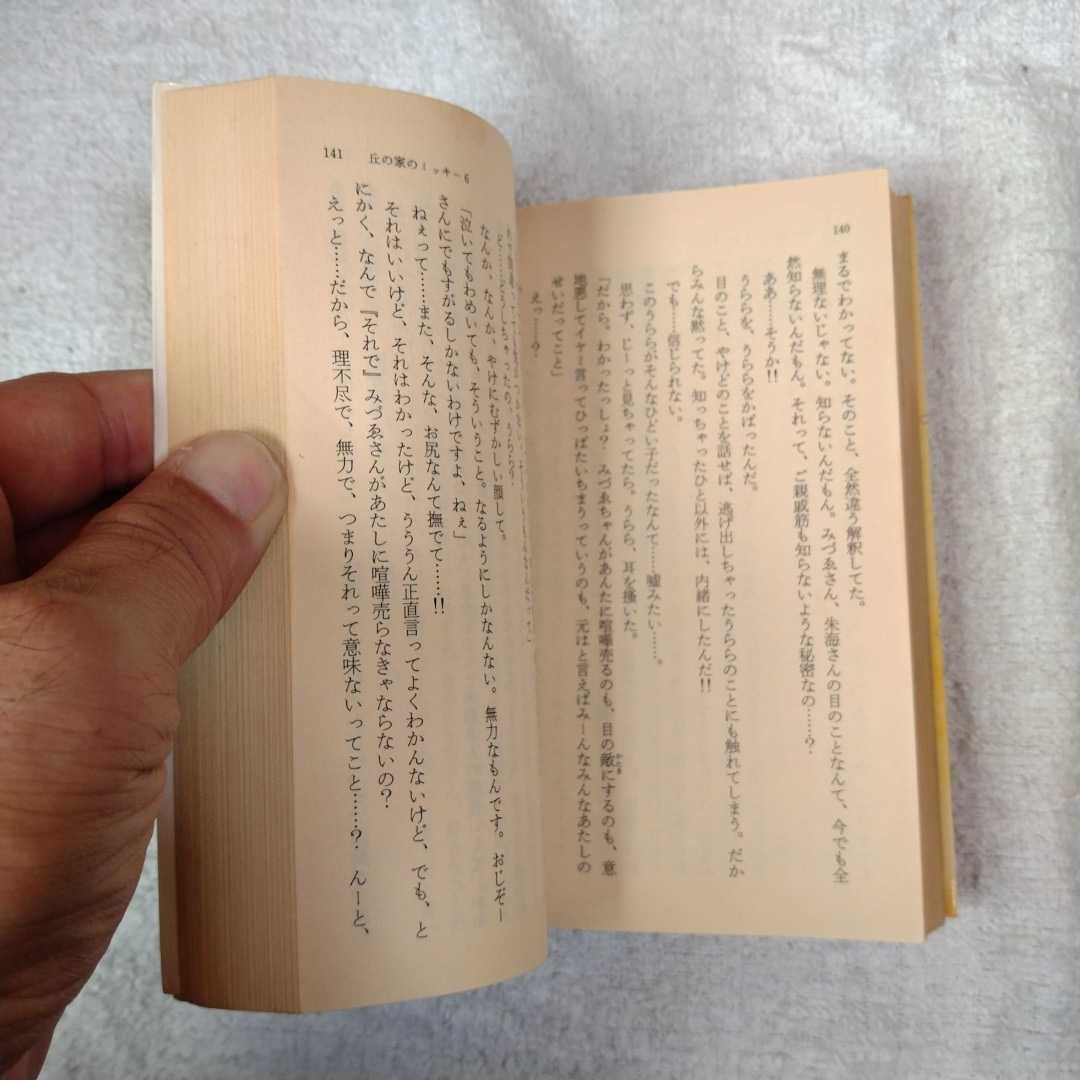 140
まるでわかってない。そのこと、全然違う解釈してた。
無理ないじゃない。知らないんだもん。みづゑさん、朱海さんの目のことなんて、今でも全
然知らないんだもん。それって、ご親戚筋も知らないような秘密なの……？
ああ……そうか!!
うららを、うららをかばったんだ。
目のこと、やけどのことを話せば、逃げ出しちゃったうららのことにも触れてしまう。だか
らみんな黙ってた。知っちゃったひと以外には、内緒にしたんだ!!
でも……信じられない。
このうららがそんなひどい子だったなんて……嘘みたい……。
思わず、じーっと見ちゃってたら。うらら、耳を掻いた。
「だから。わかったっしょ？　みづゑちゃんがあんたに喧嘩売るのも、目の敵にするのも、意
かたき
地悪してイケミ言ってひっぱたいちまうっていうのも、元はと言えばみーんなみんなあたしの
せいだってこと」
えっ……？
141　丘の家のミッキー6
ど……どうしちゃったの、うらら？
なんか、なんか、やけにむずかしい顔して。
「泣いてもわめいても、そういうこと。なるようにしかなんない。無力なもんです。おじぞー
さんにでもすがるしかないわけですよ、ねぇ」
ねぇって……また、そんな、お尻なんて撫でて……!!
それはいいけど、それはわかったけど、うううん正直言ってよくわかんないけど、でも、と
にかく、なんで『それで』みづゑさんがあたしに喧嘩売らなきゃならないの？
えっと……だから、理不尽で、無力で、つまりそれって意味ないってこと……？　んーと、